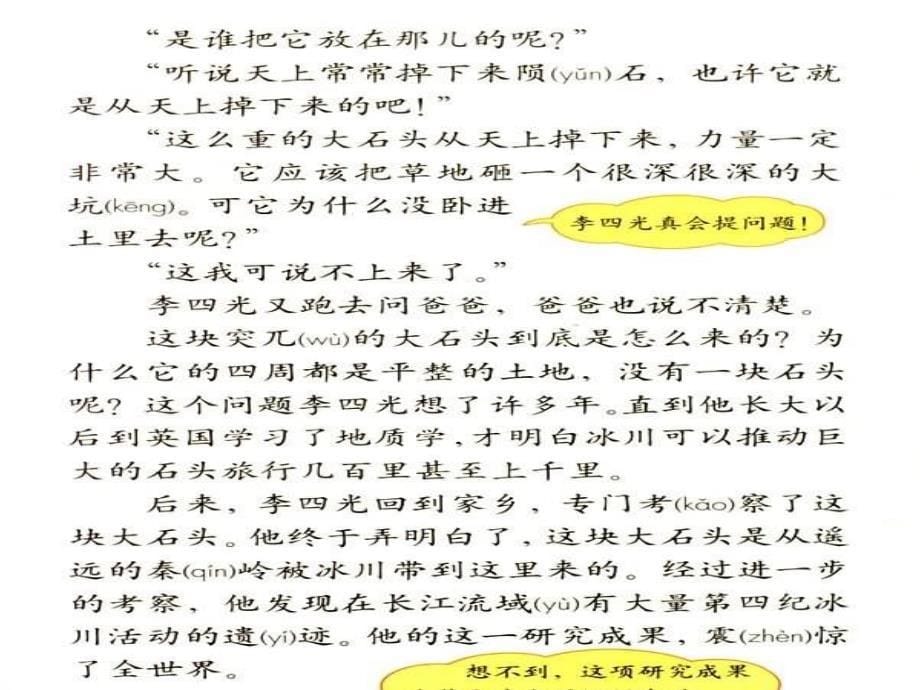 “是谁把它放在那儿的呢？”
“听说天上常常掉下来陨(yǔn)石，也许它就
是从天上掉下来的吧！”
“这么重的大石头从天上掉下来，力量一定
非常大。它应该把草地砸一个很深很深的大
坑(kēng)。可它为什么没卧进
李四光真会提问题！
土里去呢？”
“这我可说不上来了。”
李四光又跑去问爸爸，爸爸也说不清楚。
这块突兀(wù)的大石头到底是怎么来的？为
什么它的四周都是平整的土地，没有一块石头
呢？这个问题李四光想了许多年。直到他长大以
后到英国学习了地质学，才明白冰川可以推动巨
大的石头旅行几百里甚至上千里。
后来，李四光回到家乡，专门考(kǎo)察了这
块大石头。他终于弄明白了，这块大石头是从遥
远的秦(qín)岭被冰川带到这里来的。经过进一步
的考察，他发现在长江流域(yù)有大量第四纪冰
川活动的遗(yí)迹。他的这一研究成果，震(zhèn)惊
了全世界。
想不到，这项研究成果